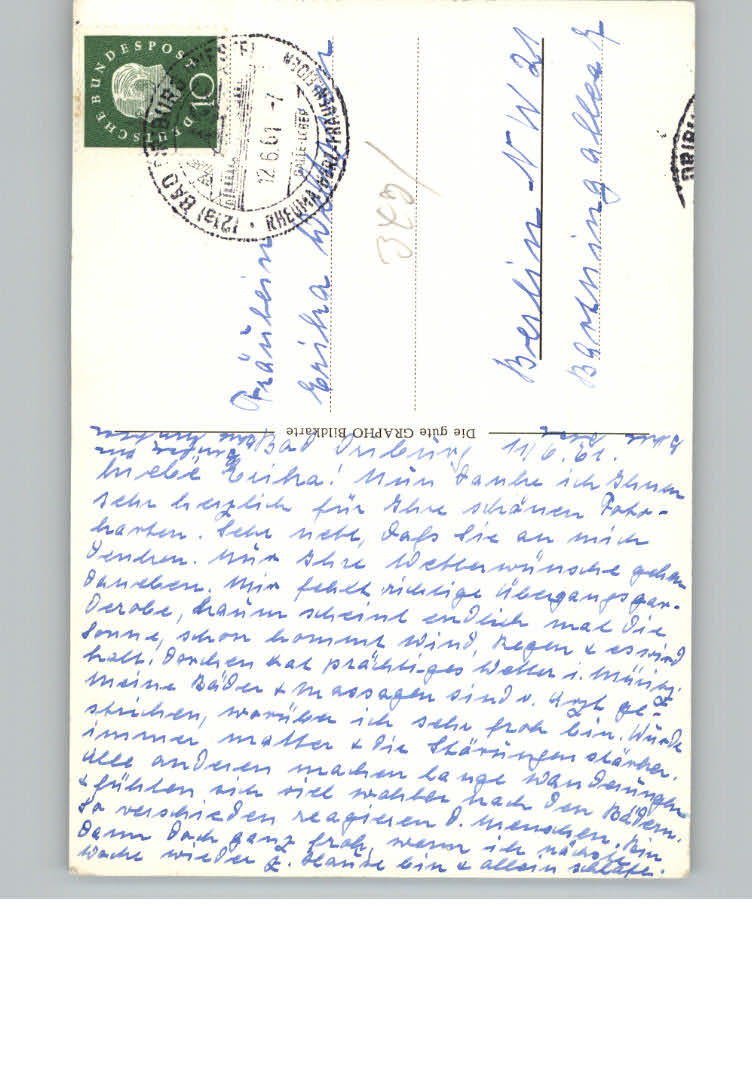 DEUTSCHE BUNDESPOST
10
(21a) BAD DRIBURG
12.6.61
GALLE-LEBER
RHEUMA HERZ FRAUENLEIDEN
DRIBU
Fräulein
Erika
Berlin NW 21
Bartningallee 7
Die gute GRAPHO Bildkarte
Bad Driburg, 11/6. 61.
Liebe Erika! Nun danke ich Ihnen
sehr herzlich für Ihre schönen Foto-
karten. Sehr nett, daß Sie an mich
denken. Nur Ihre Wetterwünsche gehen
daneben. Mir fehlt richtige Übergangsgar-
derobe, kaum scheint endlich mal die
Sonne, schon kommt Wind, Regen & es wird
kalt. hat prächtiges Wetter i.
Meine Bäder & Massagen sind v. Arzt ge-
strichen, worüber ich sehr froh bin. Würde
immer matter & die Störungen stärker.
Alle anderen machen lange Wanderungen
& fühlen sich viel wohler nach den Bädern.
So verschieden reagieren d. Menschen. Bin
dann doch ganz froh, wenn ich nächste
Woche wieder z. Hause bin & allein schlafe.